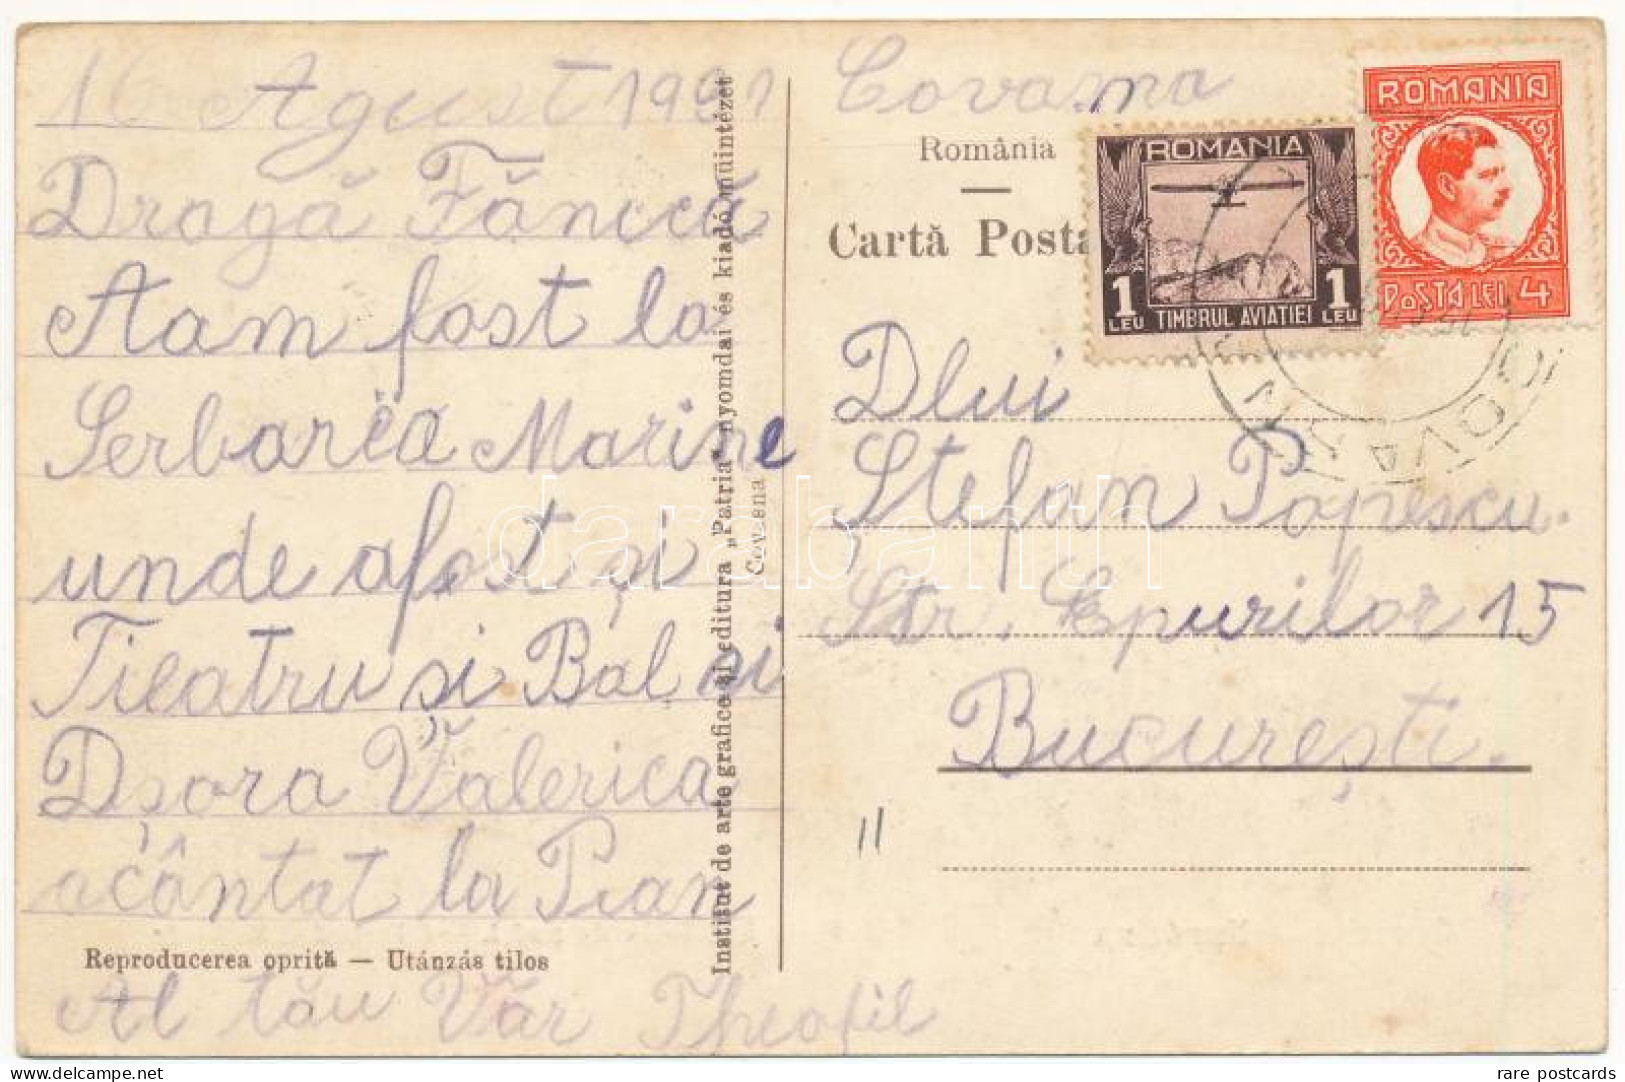 16 Agust 1931
Dragă Fănică
Aam fost la
Serbarea Marine
unde afost și
Tieatru și Bal și
Dșora Valerica
acântat la Pian
Reproducerea oprită — Utánzás tilos
Al tău Văr Theofil
Institut de arte grafice și editura „Patria" nyomdai és kiadó müintézet
Covasna
Covasna
România
Cartă Posta
ROMANIA
1 LEU TIMBRUL AVIATIEI 1 LEU
ROMANIA
POSTA LEI 4
COVASNA
Dlui
Ștefan Popescu.
Str. Epurilor 15
București.
11
darabanth
delcampe.net
rare postcards